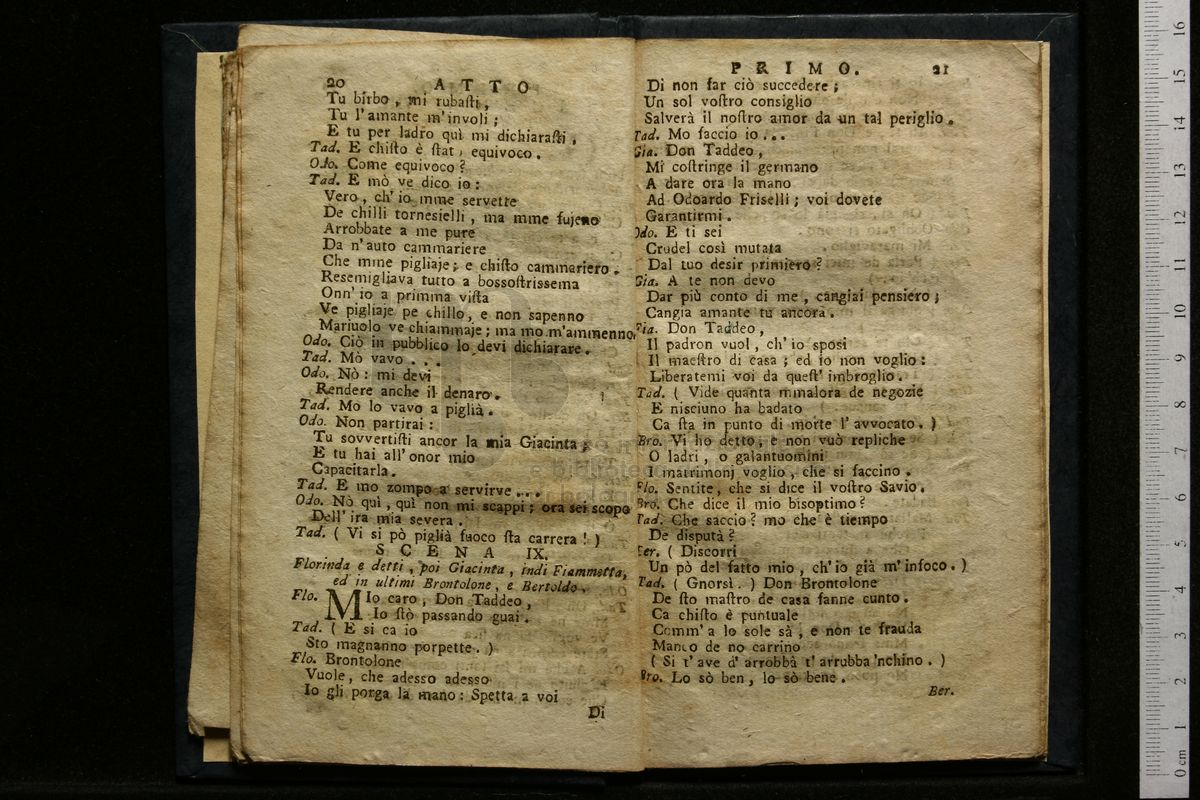 20 ATTO
Tu birbo, mi rubaſti,
Tu l'amante m'involi;
E tu per ladro quì mi dichiaraſti.
Tad. E chiſto è ſtat, equivoco.
Odo. Come equivoco?
Tad. E mò ve dico io:
Vero, ch'io mme servette
De chilli tornesielli, ma mme fujeno
Arrobbate a me pure
Da n'auto cammariere
Che mme pigliaje; e chiſto cammariero.
Resemigliava tutto a bossoſtrissema
Onn'io a primma viſta
Ve pigliaje pe chillo, e non sapenno
Mariuolo ve chiammaje; ma mo m'ammenno.
Odo. Ciò in pubblico lo devi dichiarare.
Tad. Mò vavo ...
Odo. Nò: mi devi
Rendere anche il denaro.
Tad. Mo lo vavo a piglià.
Odo. Non partirai:
Tu sovvertiſti ancor la mia Giacinta;
E tu hai all'onor mio
Capacitarla.
Tad. E mo zompo a servirve ...
Odo. Nò qui, quì non mi scappi; ora sei scopo
Dell'ira mia severa.
Tad. (Vi si pò piglià fuoco ſta carrera!)
SCENA IX.
Florinda e detti, poi Giacinta, indi Fiammetta,
ed in ultimi Brontolone, e Bertoldo.
Flo. MIo caro, Don Taddeo,
Io ſtò passando guai.
Tad. (E si ca io
Sto magnanno porpette.)
Flo. Brontolone
Vuole, che adesso adesso
Io gli porga la mano: Spetta a voi
Di
PRIMO. 21
Di non far ciò succedere;
Un sol voſtro consiglio
Salverà il noſtro amor da un tal periglio.
Tad. Mo faccio io ...
Gia. Don Taddeo,
Mi coſtringe il germano
A dare ora la mano
Ad Odoardo Friselli; voi dovete
Garantirmi.
Odo. E ti sei
Crudel così mutata
Dal tuo desir primiero?
Gia. A te non devo
Dar più conto di me, cangiai pensiero;
Cangia amante tu ancora.
Fia. Don Taddeo,
Il padron vuol, ch'io sposi
Il maeſtro di casa; ed io non voglio:
Liberatemi voi da queſt'imbroglio.
Tad. (Vide quanta mmalora de negozie
E nisciuno ha badato
Ca ſta in punto di morte l'avvocato.)
Bro. Vi ho detto, e non vuò repliche
O ladri, o galantuomini
I matrimonj voglio, che si faccino.
Flo. Sentite, che si dice il voſtro Savio.
Bro. Che dice il mio bisoptimo?
Tad. Che saccio? mo che è tiempo
De disputà?
Ber. (Discorri
Un pò del fatto mio, ch'io già m'infoco.)
Tad. (Gnorsì.) Don Brontolone
De ſto maſtro de casa fanne cunto.
Ca chiſto è puntuale
Comm'a lo sole sà, e non te frauda
Manco de no carrino
(Si t'ave d'arrobbà t'arrubba 'nchino.)
Bro. Lo sò ben, lo sò bene.
Ber.
0 cm 1 2 3 4 5 6 7 8 9 10 11 12 13 14 15 16